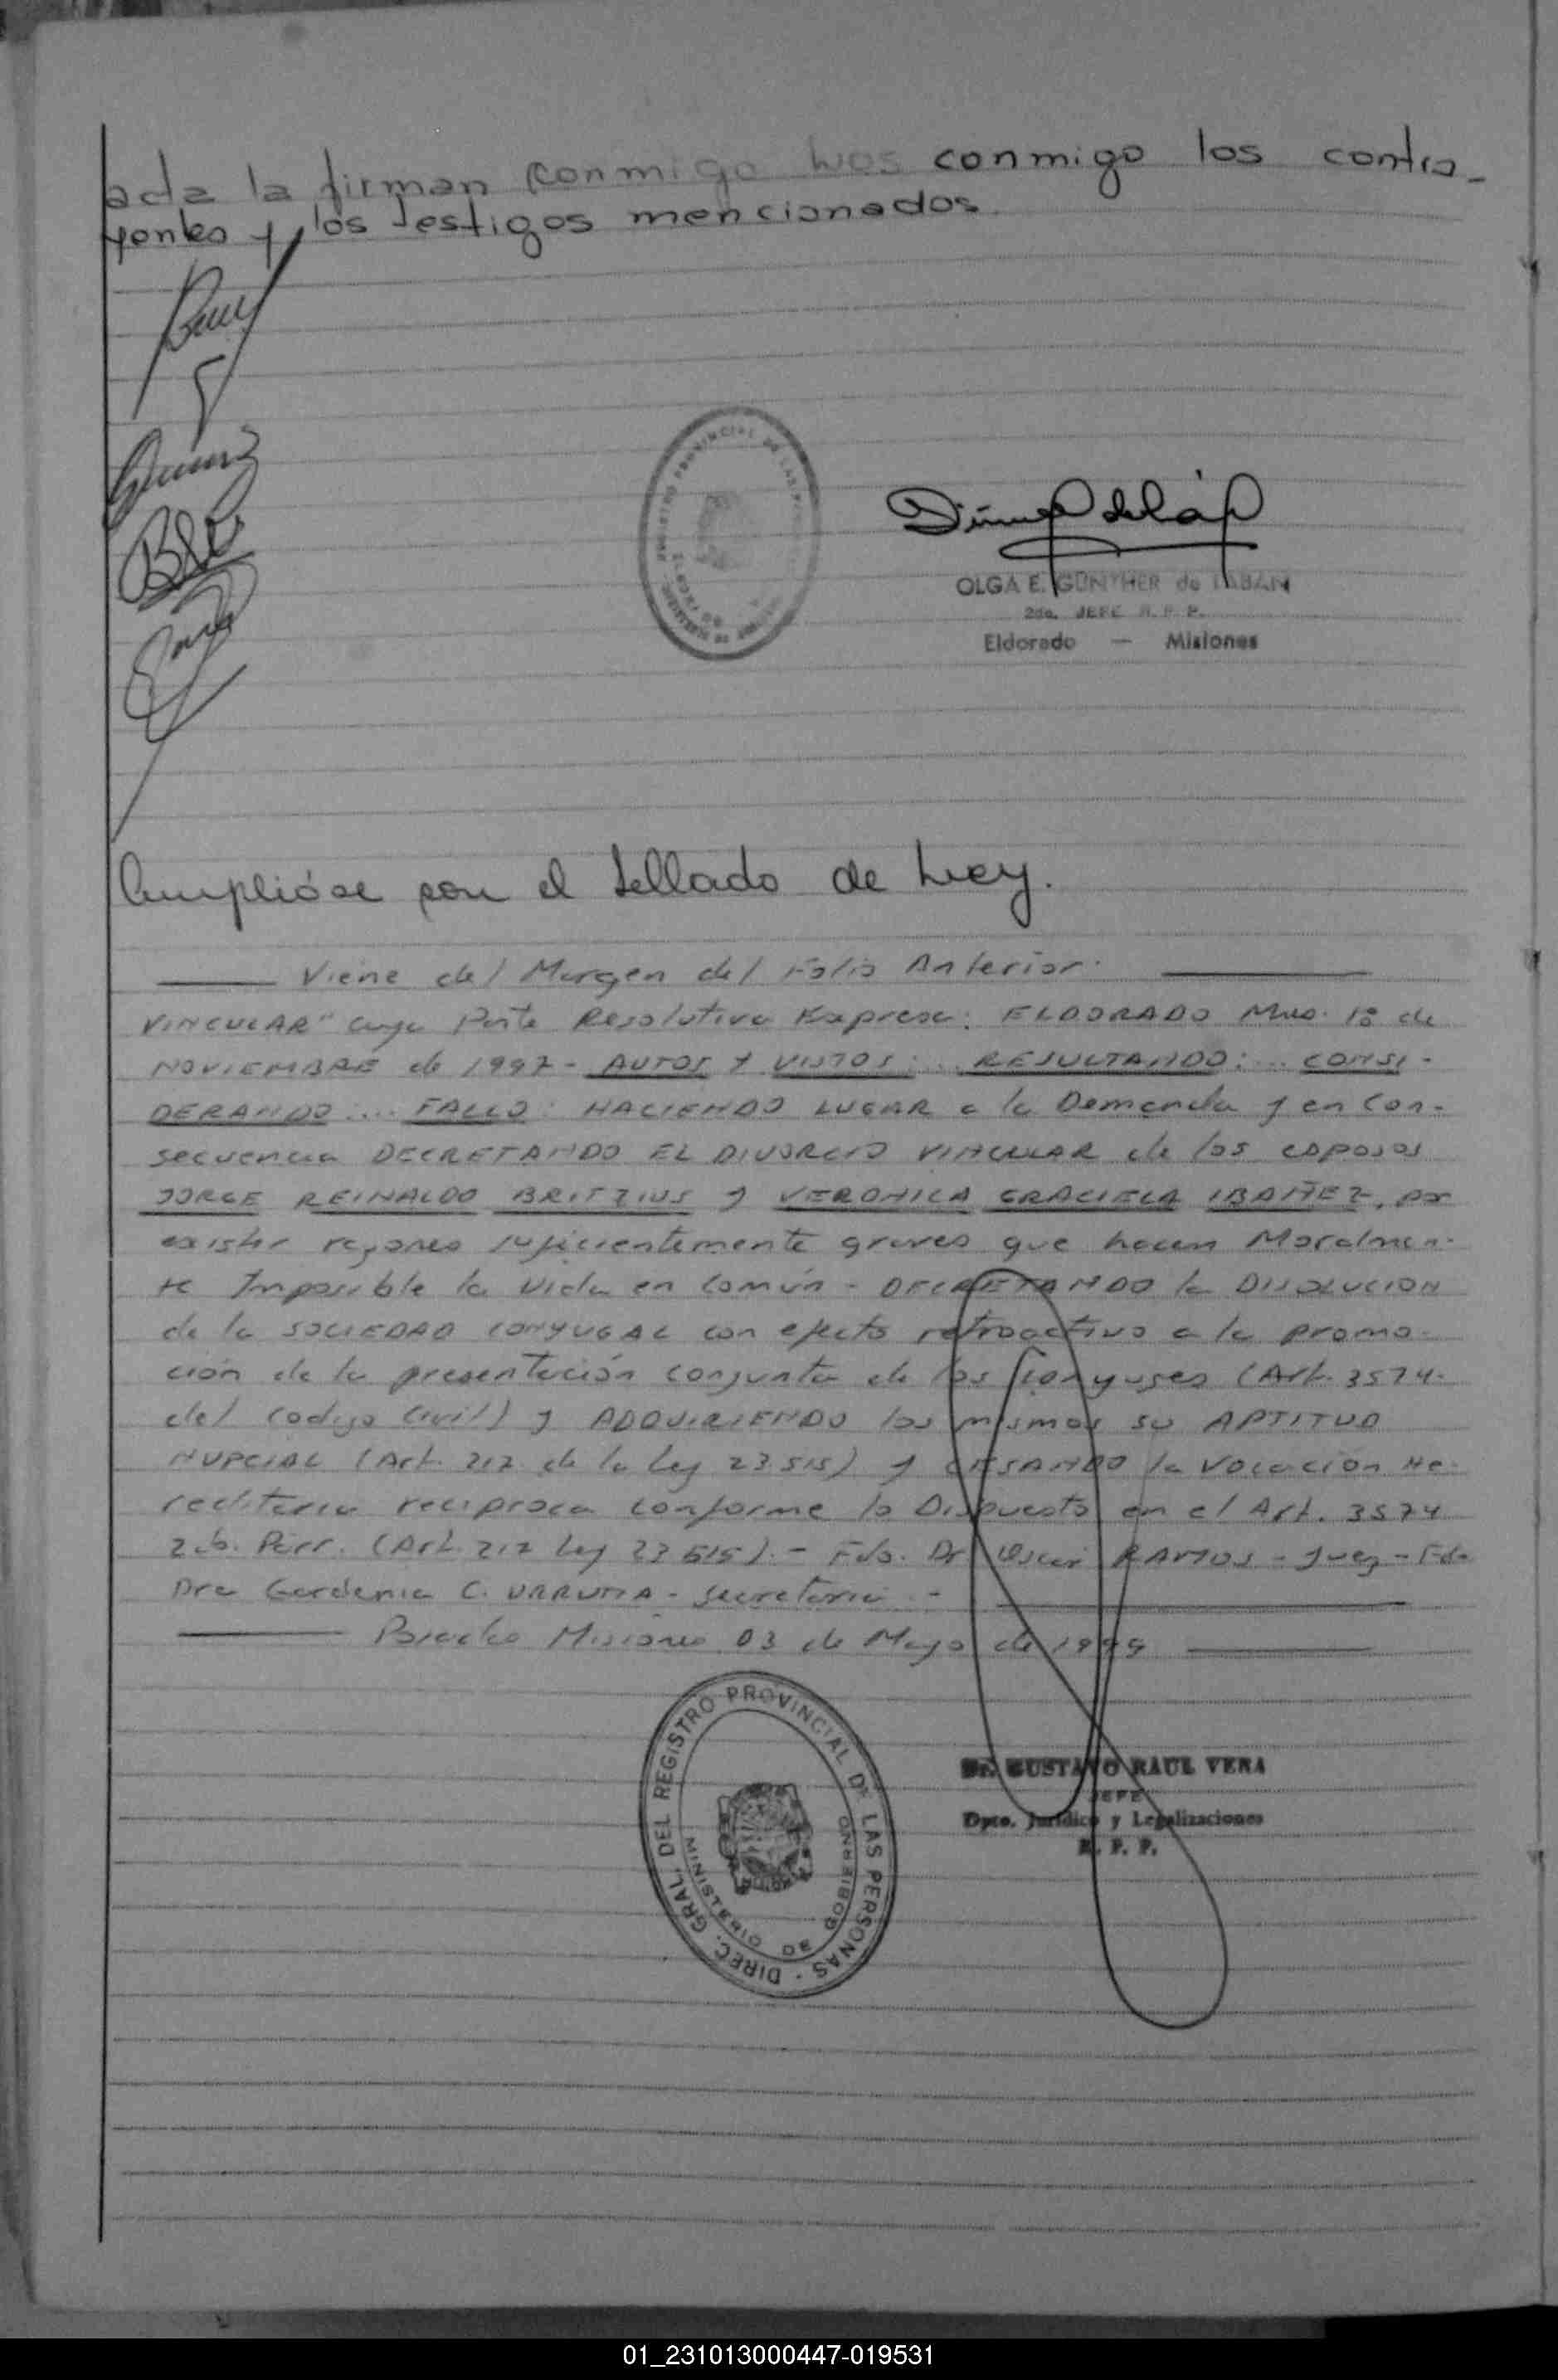 acta la firman conmigo los conmigo los contra-
yentes y los testigos mencionados.
REGISTRO PROVINCIAL DE LAS
OLGA E. GÜNTHER de LABAN
2do. JEFE R. P. P.
Eldorado — Misiones
Cumplióse con el Sellado de Ley.
Viene del Margen del Folio Anterior.
VINCULAR" cuya Parte Resolutiva Expresa: ELDORADO Mnes. 18 de
NOVIEMBRE de 1997- AUTOS Y VISTOS:... RESULTANDO:... CONSI-
DERANDO:... FALLO: HACIENDO LUGAR a la Demanda y en Con-
secuencia DECRETANDO EL DIVORCIO VINCULAR de los esposos
JORGE REINALDO BRITZIUS y VERONICA GRACIELA IBAÑEZ, por
existir razones suficientemente graves que hacen Moralmen-
te Imposible la Vida en Común - DECRETANDO la DISOLUCION
de la SOCIEDAD CONYUGAL con efecto retroactivo a la promo-
ción de la presentación conjunta de los Conyuges (Art. 3574-
del Codigo Civil) y ADQUIRIENDO los mismos su APTITUD
NUPCIAL (Art. 217 de la Ley 23.515) y CESANDO la Vocación He-
reditaria reciproca conforme lo Dispuesto en el Art. 3574
2do. Párr. (Art. 217 Ley 23515).- Fdo. Dr. Oscar RAMOS - Juez - Fdo
Dra Gardenia C. URRUTIA - Secretaria.-
Posadas Misiones 03 de Mayo de 1999
DIREC. GRAL. DEL REGISTRO PROVINCIAL DE LAS PERSONAS -
MINISTERIO DE GOBIERNO
Dr. GUSTAVO RAUL VERA
JEFE
Dpto. Jurídico y Legalizaciones
R. P. P.
01_231013000447-019531